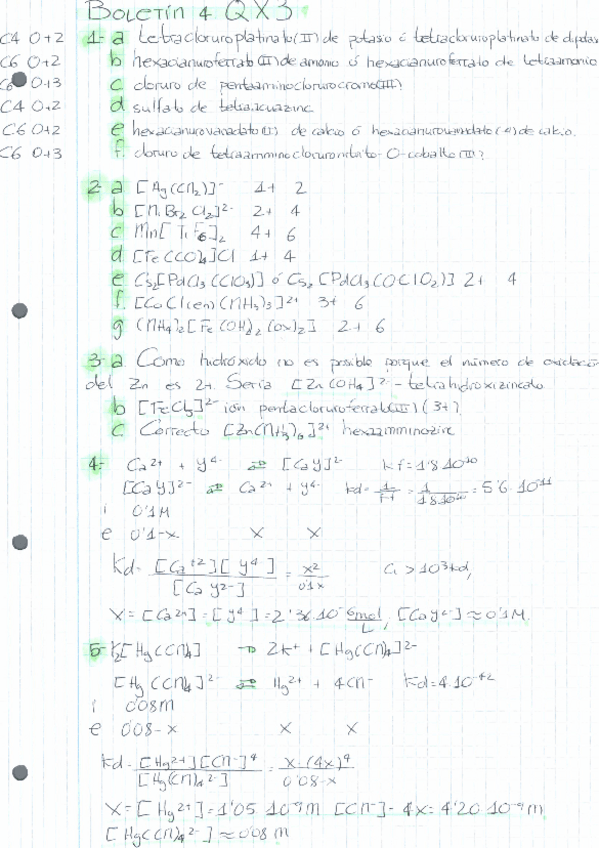 BOLETÍN 4 QX3
C4 O+2 1- a tetracloruroplatinato(II) de potasio ó tetracloruroplatinato de dipotasio
C6 O+2 b hexacianuroferrato(II) de amonio ó hexacianuroferrato de tetraamonio
C6 O+3 c cloruro de pentaaminoclorurocromo(III)
C4 O+2 d sulfato de tetraacuazinc
C6 O+2 e hexacianurovanadato(II) de calcio ó hexacianurovanadato(4-) de calcio.
C6 O+3 f. cloruro de -O-cobalto(III)?
2- a [Ag(CN)2]- 1+ 2
b [NiBr2Cl2]2- 2+ 4
c Mn[TiF6]2 4+ 6
d [Fe(CO)4]Cl 1+ 4
e Cs2[PdCl3(ClO3)] ó Cs2[PdCl3(OClO2)] 2+ 4
f. [CoCl(en)(NH3)3]2+ 3+ 6
g (NH4)2[Fe(OH)2(ox)2] 2+ 6
3- a Como hidróxido no es posible porque el número de oxidación
del Zn es 2+. Sería [Zn(OH)4]2- - tetrahidroxizincato
b [FeCl5]2- ión pentacloruroferrato(III) (3+)
c. Correcto [Zn(NH3)6]2+ hexaamminozinc
4- Ca2+ + y4- ⇌ [Cay]2- kf=1'8·10^10
[Cay]2- ⇌ Ca2+ + y4- kd= 1/kf = 1/1'8·10^10 = 5'6·10^-11
i 0'1M
e 0'1-x x x
Kd= [Ca+2][y4-]/[Cay2-] = x2/0'1-x Ci > 10^3 kd,
X=[Ca2+]=[y4-]=2'36·10^-6 mol/L, [Cay2-]≈0'1M.
5- K2[Hg(CN)4] → 2K+ + [Hg(CN)4]2-
[Hg(CN)4]2- ⇌ Hg2+ + 4CN- Kd=4·10^-42
i 0'08M
e 0'08-x x x
kd= [Hg2+][CN-]4/[Hg(CN)4 2-] = x·(4x)4/0'08-x
X=[Hg2+]=1'05·10^-9M [CN-]=4x=4'20·10^-9M
[Hg(CN)4 2-]≈0'08M